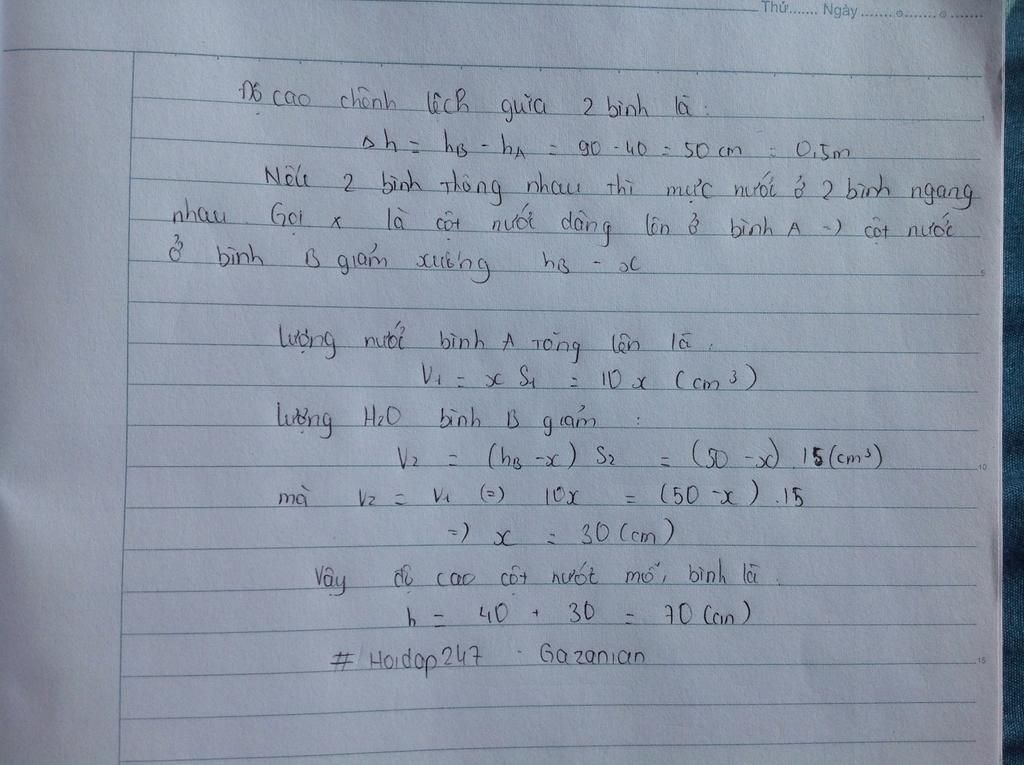 Thứ....... Ngày........o........o........
Độ cao chênh lệch giữa 2 bình là:
Δh = hB - hA = 90 - 40 = 50 cm = 0,5m
Nếu 2 bình thông nhau thì mực nước ở 2 bình ngang
nhau. Gọi x là cột nước dâng lên ở bình A => cột nước
ở bình B giảm xuống hB - x
Lượng nước bình A tăng lên là:
V1 = x S1 = 10 x (cm³)
Lượng H2O bình B giảm :
V2 = (hB - x) S2 = (50 - x) . 15 (cm³)
mà V2 = V1 (=) 10x = (50 - x) . 15
=> x = 30 (cm)
Vậy độ cao cột nước mỗi bình là
h = 40 + 30 = 70 (cm)
# Hoidap247 - Gazanian